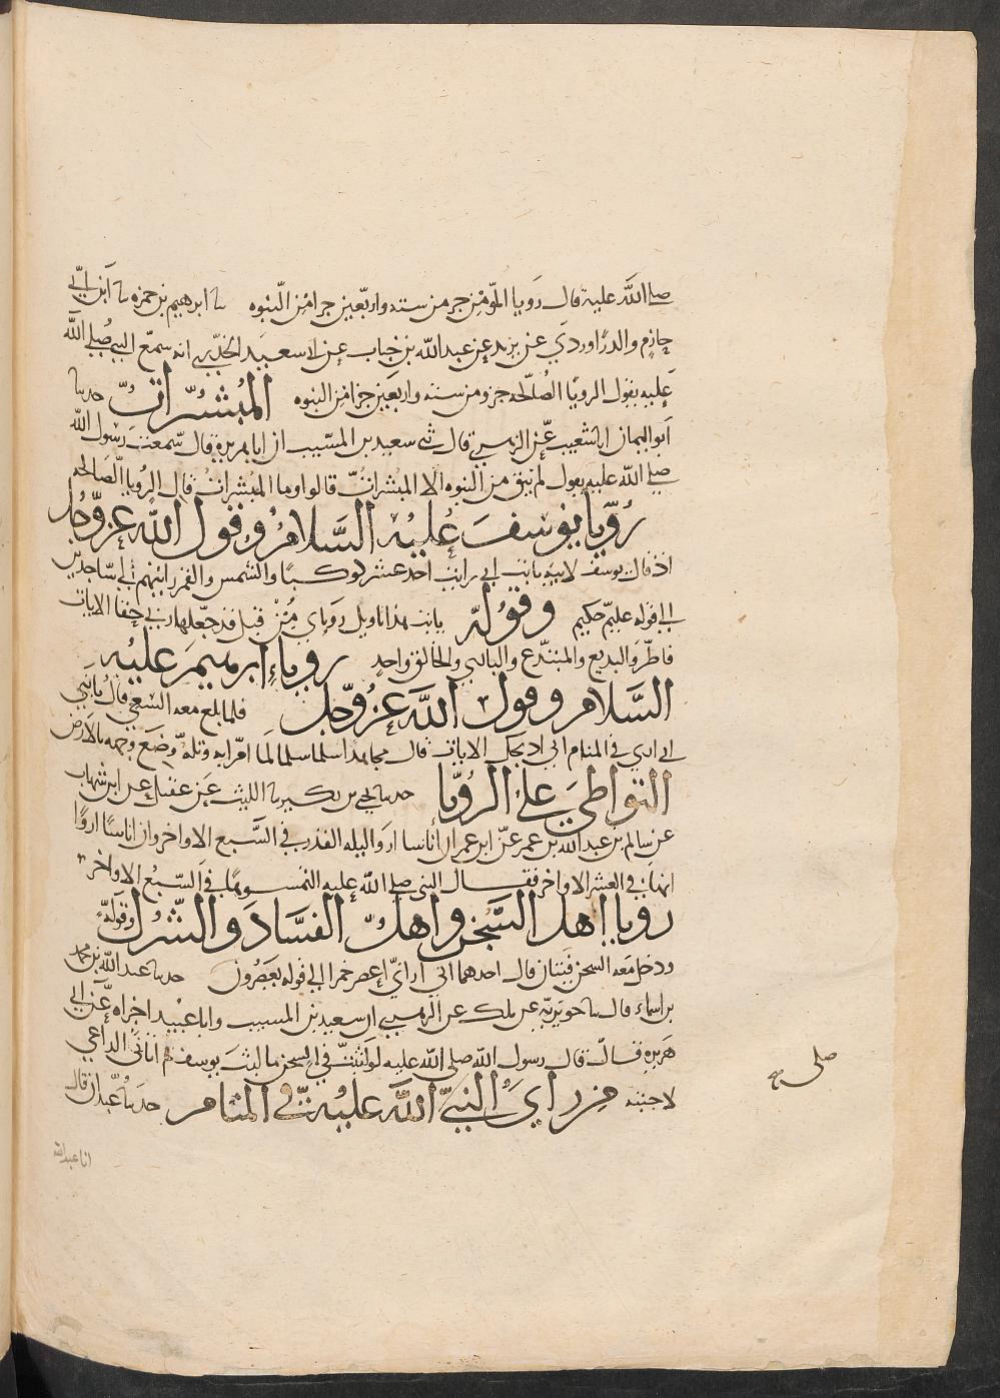 صلى الله عليه قال رويا المومن جز من سته واربعين جزا من النبوه نا ابرهيم بن حمزه نا ابن ابي
حازم والدراوردي عن يزيد عن عبد الله بن خباب عن ابي سعيد الخدري انه سمع النبي صلى الله
عليه يقول الرويا الصالحه جزو من سته واربعين جزا من النبوه المبشرات حدثنا
ابو اليمان انا شعيب عن الزهري قال ثني سعيد بن المسيب ان ابا هريرة قال سمعت رسول الله
صلى الله عليه يقول لم يبق من النبوه الا المبشرات قالوا وما المبشرات قال الرويا الصالحه
رُويا يوسف عليه السلام وقول الله عز وجل
اذ قال يوسف لابيه يابت اني رايت احد عشر كوكبا والشمس والقمر رايتهم لي ساجدين
الى قوله عليم حكيم وقوله يابت هذا تاويل روياي من قبل قد جعلها ربي حقا الايات
فاطر والبديع والمبتدع والبارئ والخالق واحد روياء ابرهيم عليه
السلام وقول الله عز وجل فلما بلغ معه السعي قال يابني
اني ارى في المنام اني اذبحك الايات قال مجاهد اسلما سلما لما امرا به وتله وضع وجهه بالارض
التواطئ على الرُويا حدثنا يحيى بن بكير نا الليث عن عقيل عن ابن شهاب
عن سالم بن عبد الله بن عمر عن ابن عمر ان اناسا اروا ليله القدر في السبع الاواخر وان اناسا اروا
انها في العشر الاواخر فقال النبي صلى الله عليه التمسوها في السبع الاواخر
رويا اهل السجن واهل الفساد والشرك وقوله
ودخل معه السجن فتيان قال احدهما اني اراني اعصر خمرا الى قوله يعصرون حدثنا عبد الله بن محمد
بن اسماء قال نا جويرية عن ملك عن الزهري ان سعيد بن المسيب وابا عبيد اخبراه عن ابي
هريره قال قال رسول الله صلى الله عليه لو لبثت في السجن ما لبث يوسف ثم اتاني الداعي
لاجبته من راى النبي الله عليه في المنام حدثنا عبدان قال
صلى
انا عبد الله